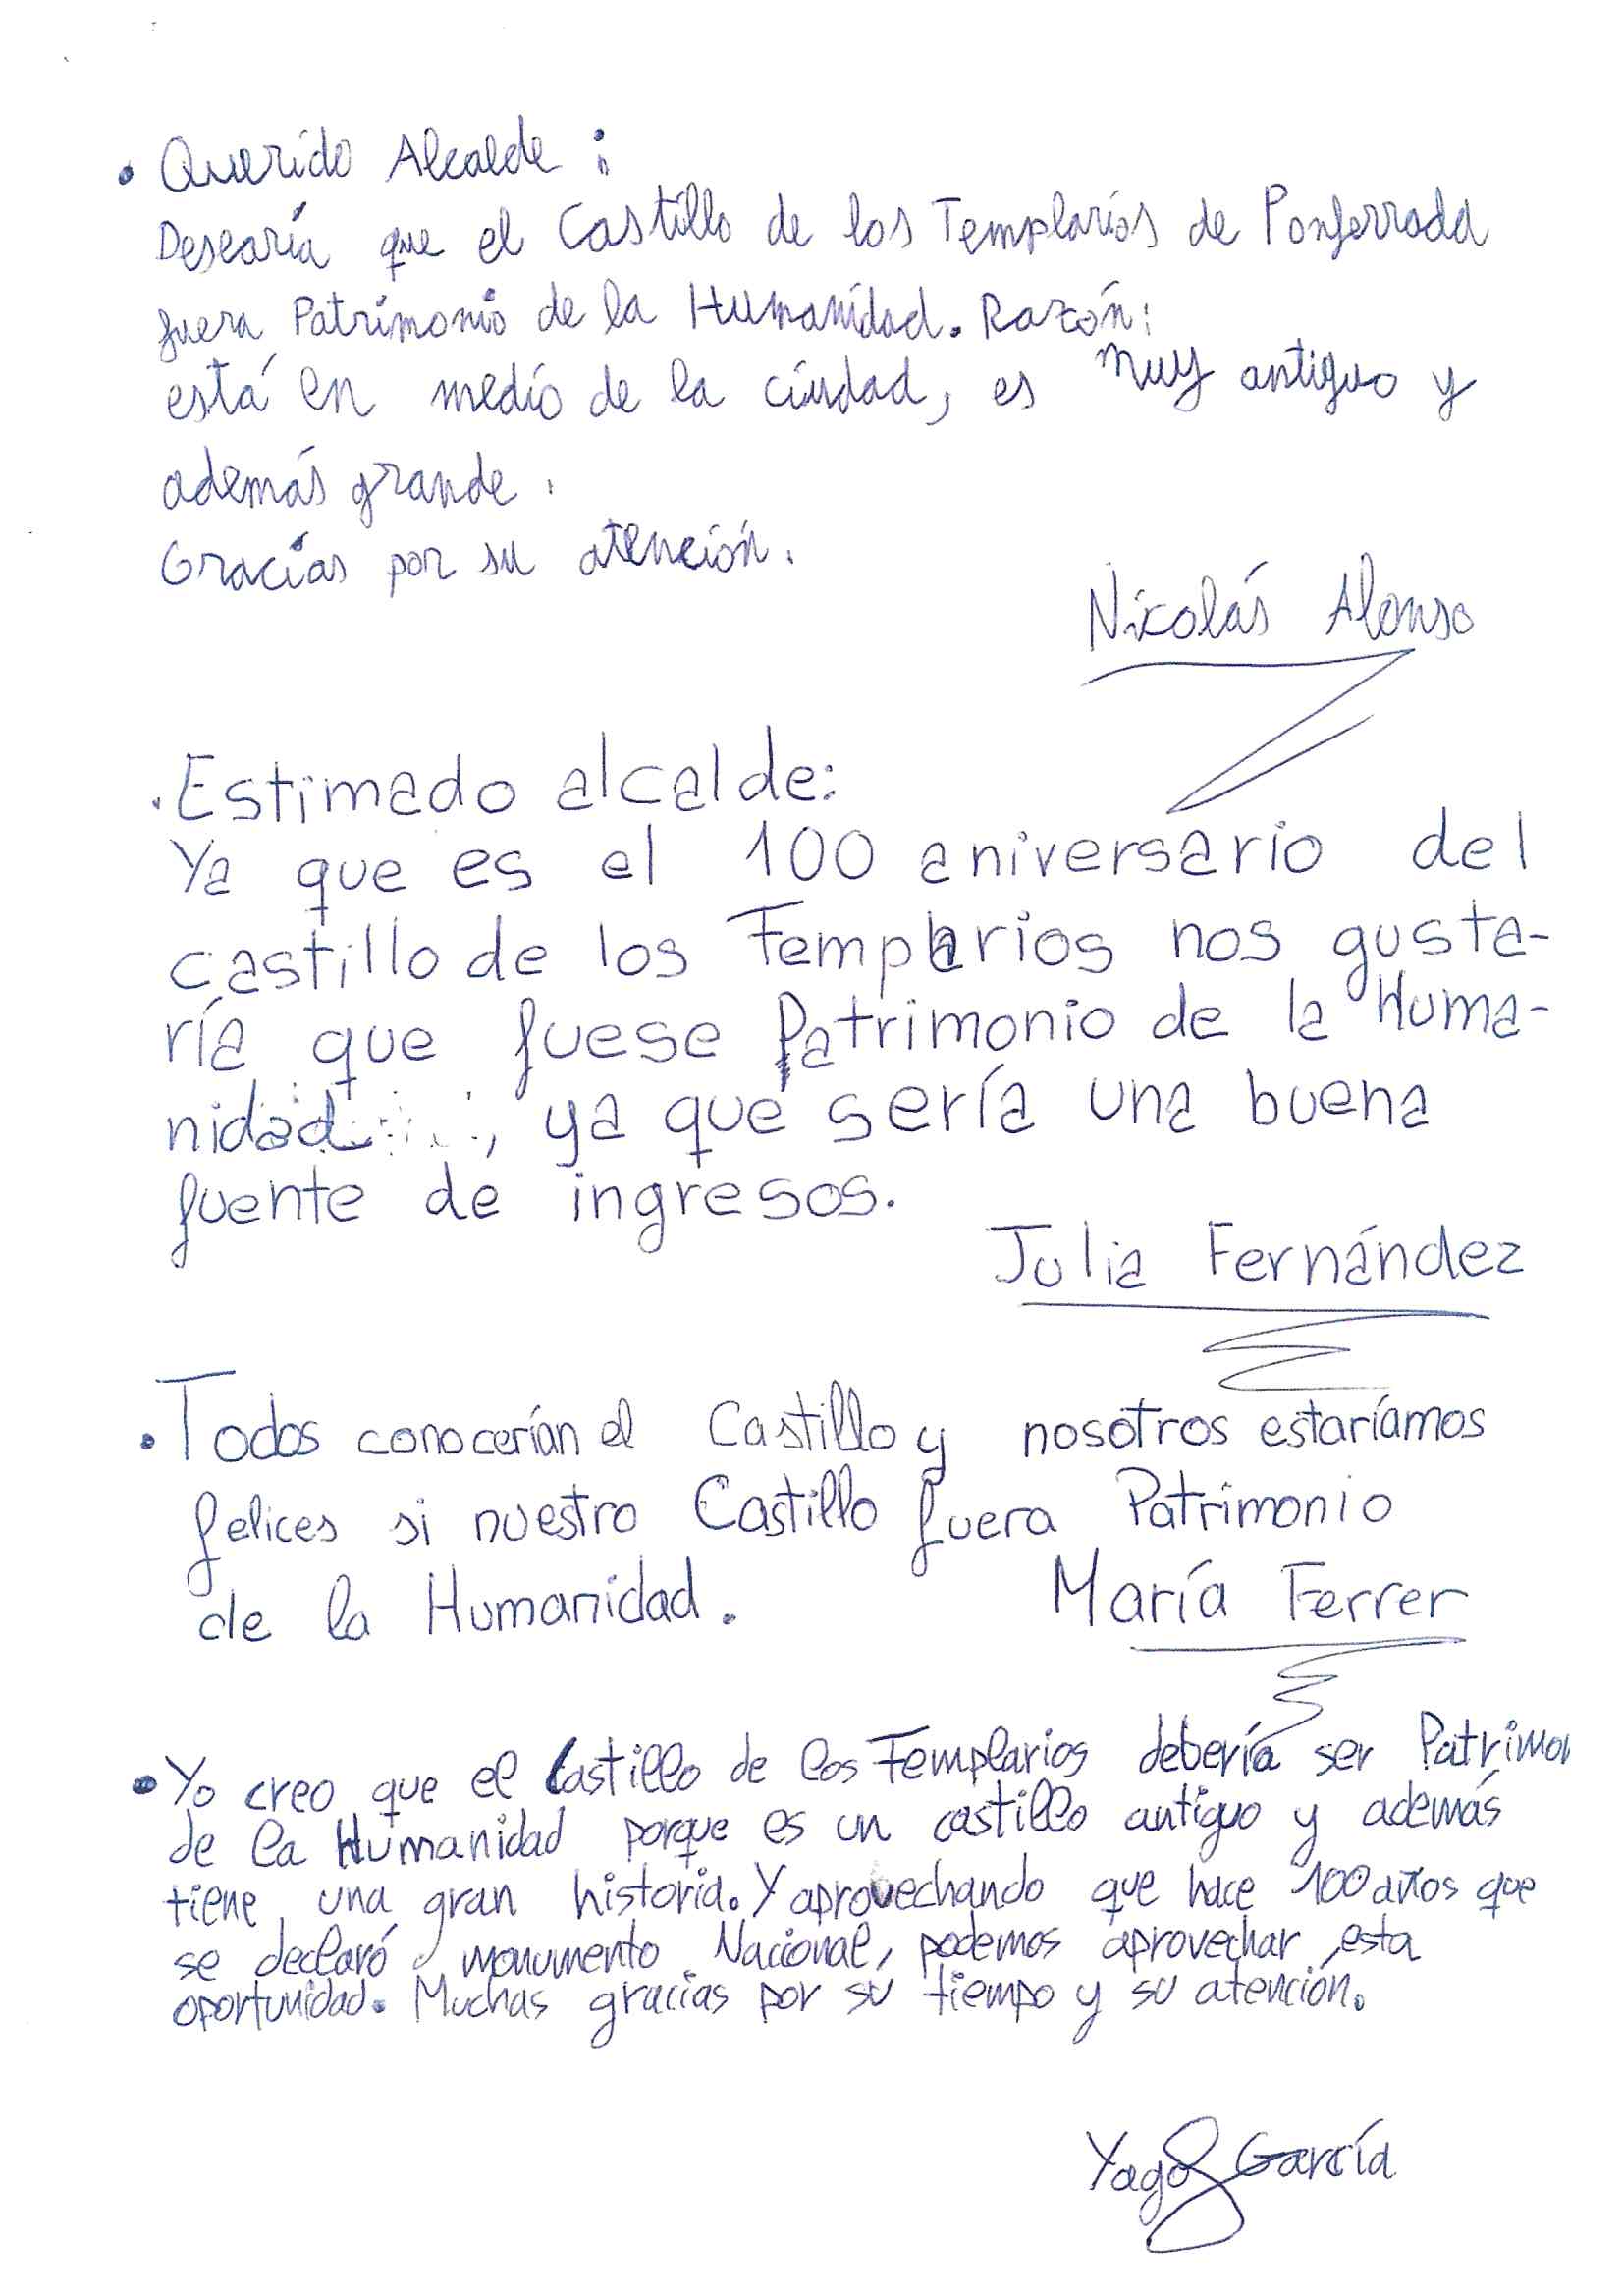 • Querido Alcalde :
Desearía que el Castillo de los Templarios de Ponferrada
fuera Patrimonio de la Humanidad. Razón:
está en medio de la ciudad, es muy antiguo y
además grande.
Gracias por su atención.
Nicolás Alonso
. Estimado alcalde:
Ya que es el 100 aniversario del
castillo de los Templarios nos gusta-
ría que fuese Patrimonio de la Huma-
nidad , ya que sería una buena
fuente de ingresos.
Julia Fernández
• Todos conocerían el Castillo y nosotros estaríamos
felices si nuestro Castillo fuera Patrimonio
de la Humanidad.
María Ferrer
• Yo creo que el Castillo de los Templarios debería ser Patrimon
de la Humanidad porque es un castillo antiguo y además
tiene una gran historia. Y aprovechando que hace 100 años que
se declaró monumento Nacional, podemos aprovechar esta
oportunidad. Muchas gracias por su tiempo y su atención.
Yago García